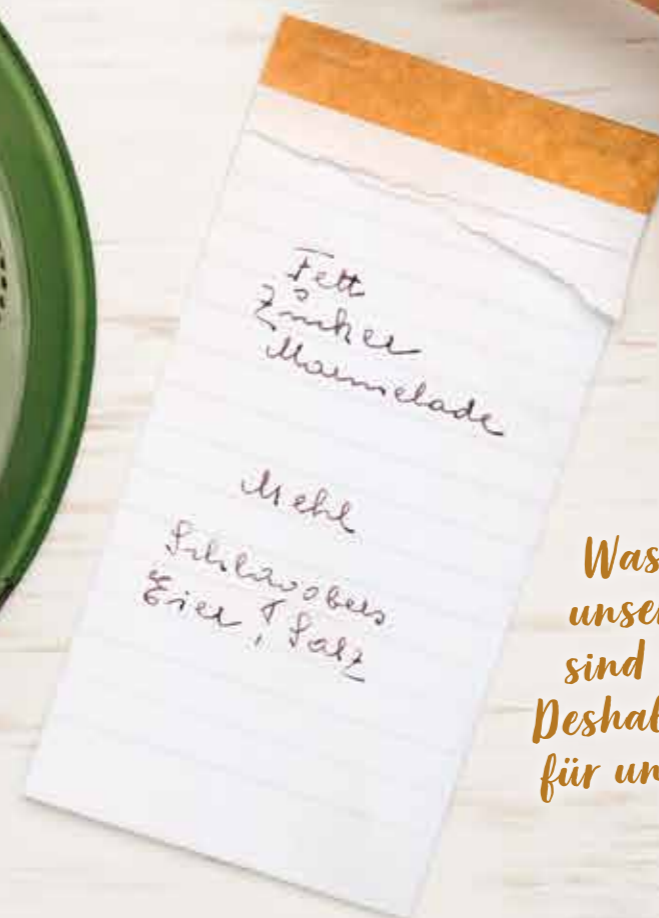 Fett
Zucker
Marmelade
Mehl
Schlagobers
Eier, Salz
Was
unser
sind
Deshal
für un